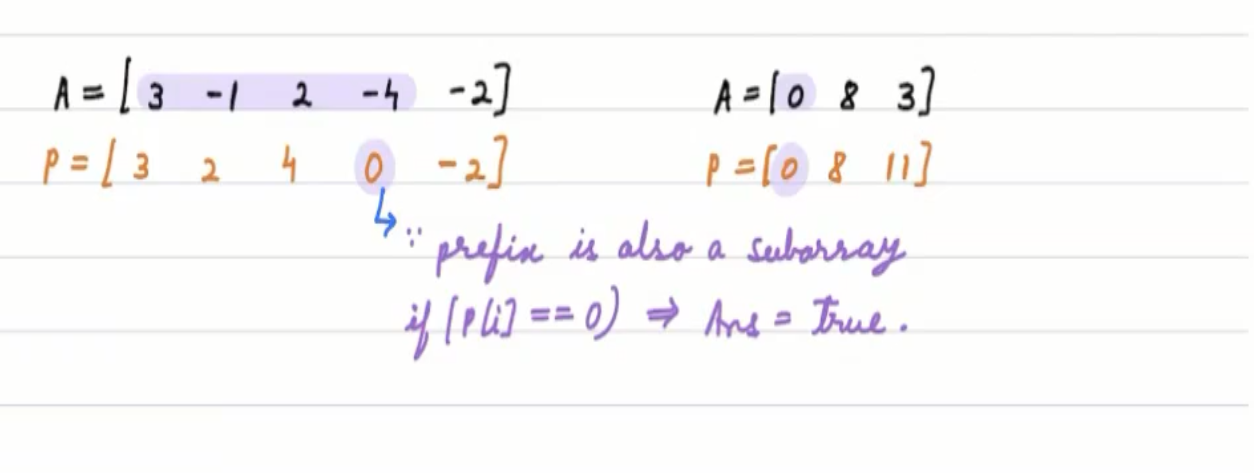 A = [ 3 -1 2 -4 -2 ]
A = [ 0 8 3 ]
P = [ 3 2 4 0 -2 ]
P = [ 0 8 11 ]
∵ prefix is also a subarray
if [P[i] == 0) ⇒ Ans = True.